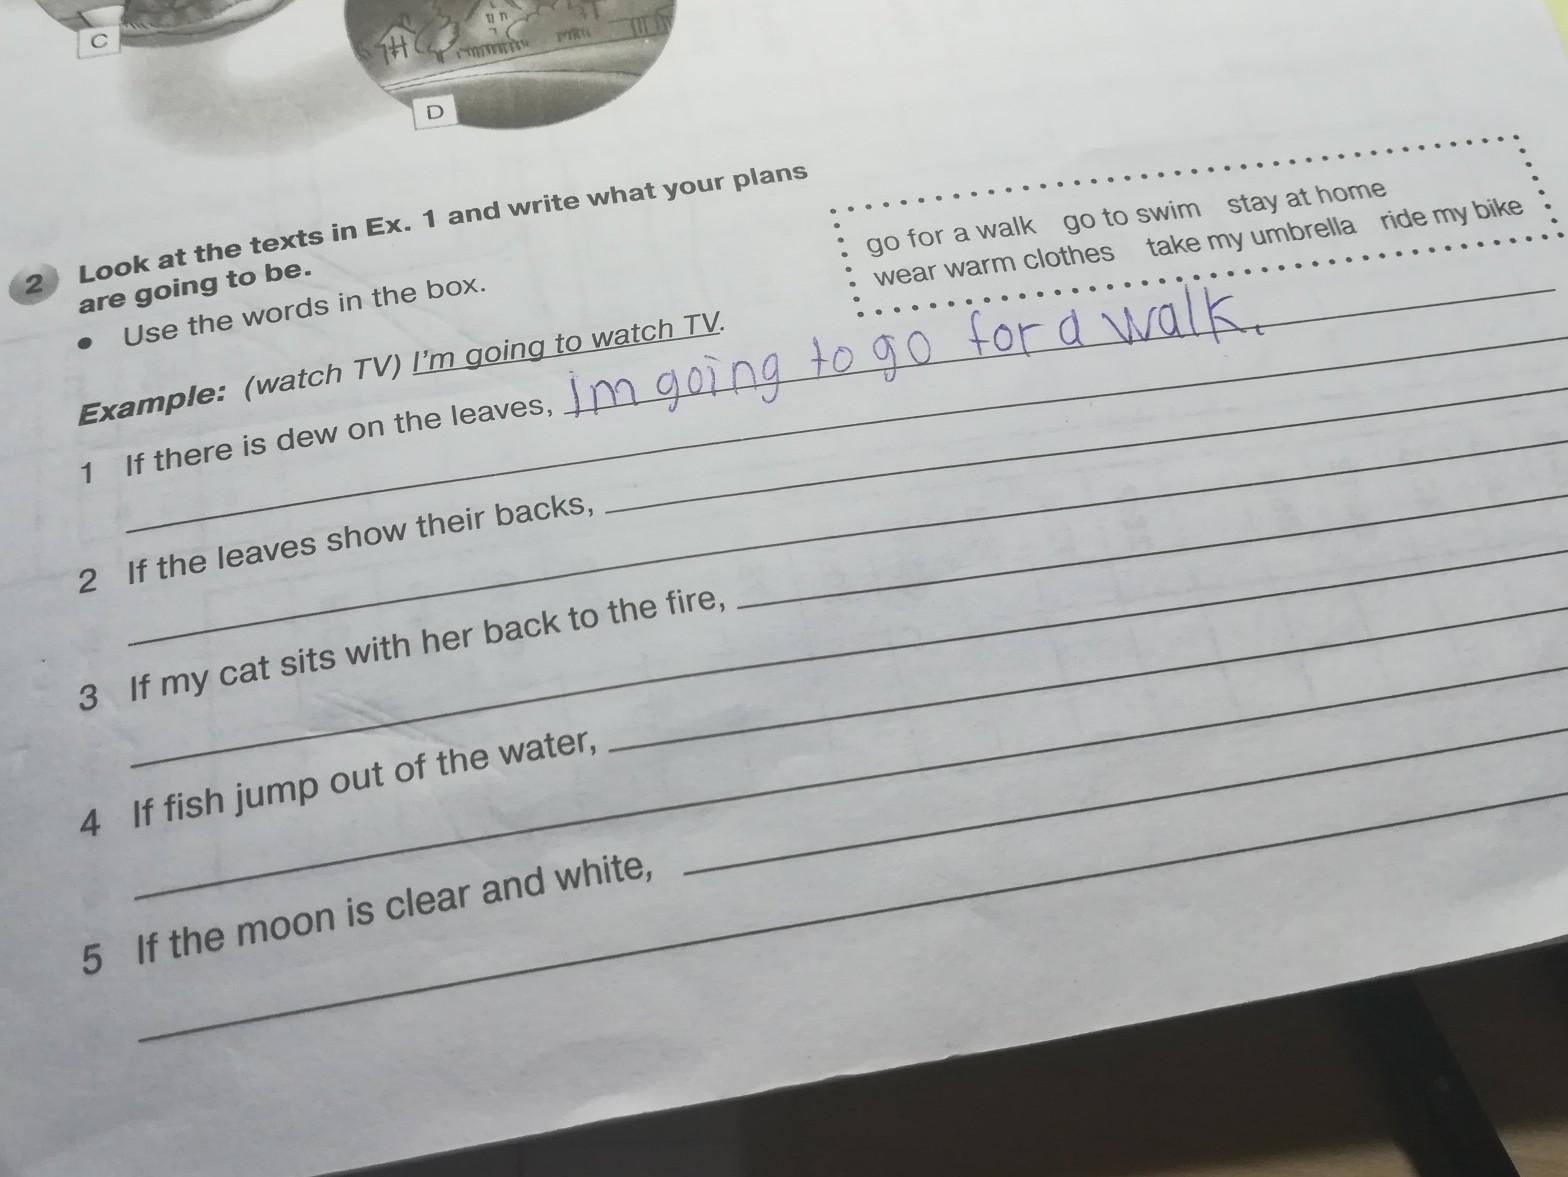 C
D
2 Look at the texts in Ex. 1 and write what your plans
are going to be.
• Use the words in the box.
go for a walk go to swim stay at home
wear warm clothes take my umbrella ride my bike
Example: (watch TV) I'm going to watch TV.
1 If there is dew on the leaves, Im going to go for a walk.
2 If the leaves show their backs,
3 If my cat sits with her back to the fire,
4 If fish jump out of the water,
5 If the moon is clear and white,